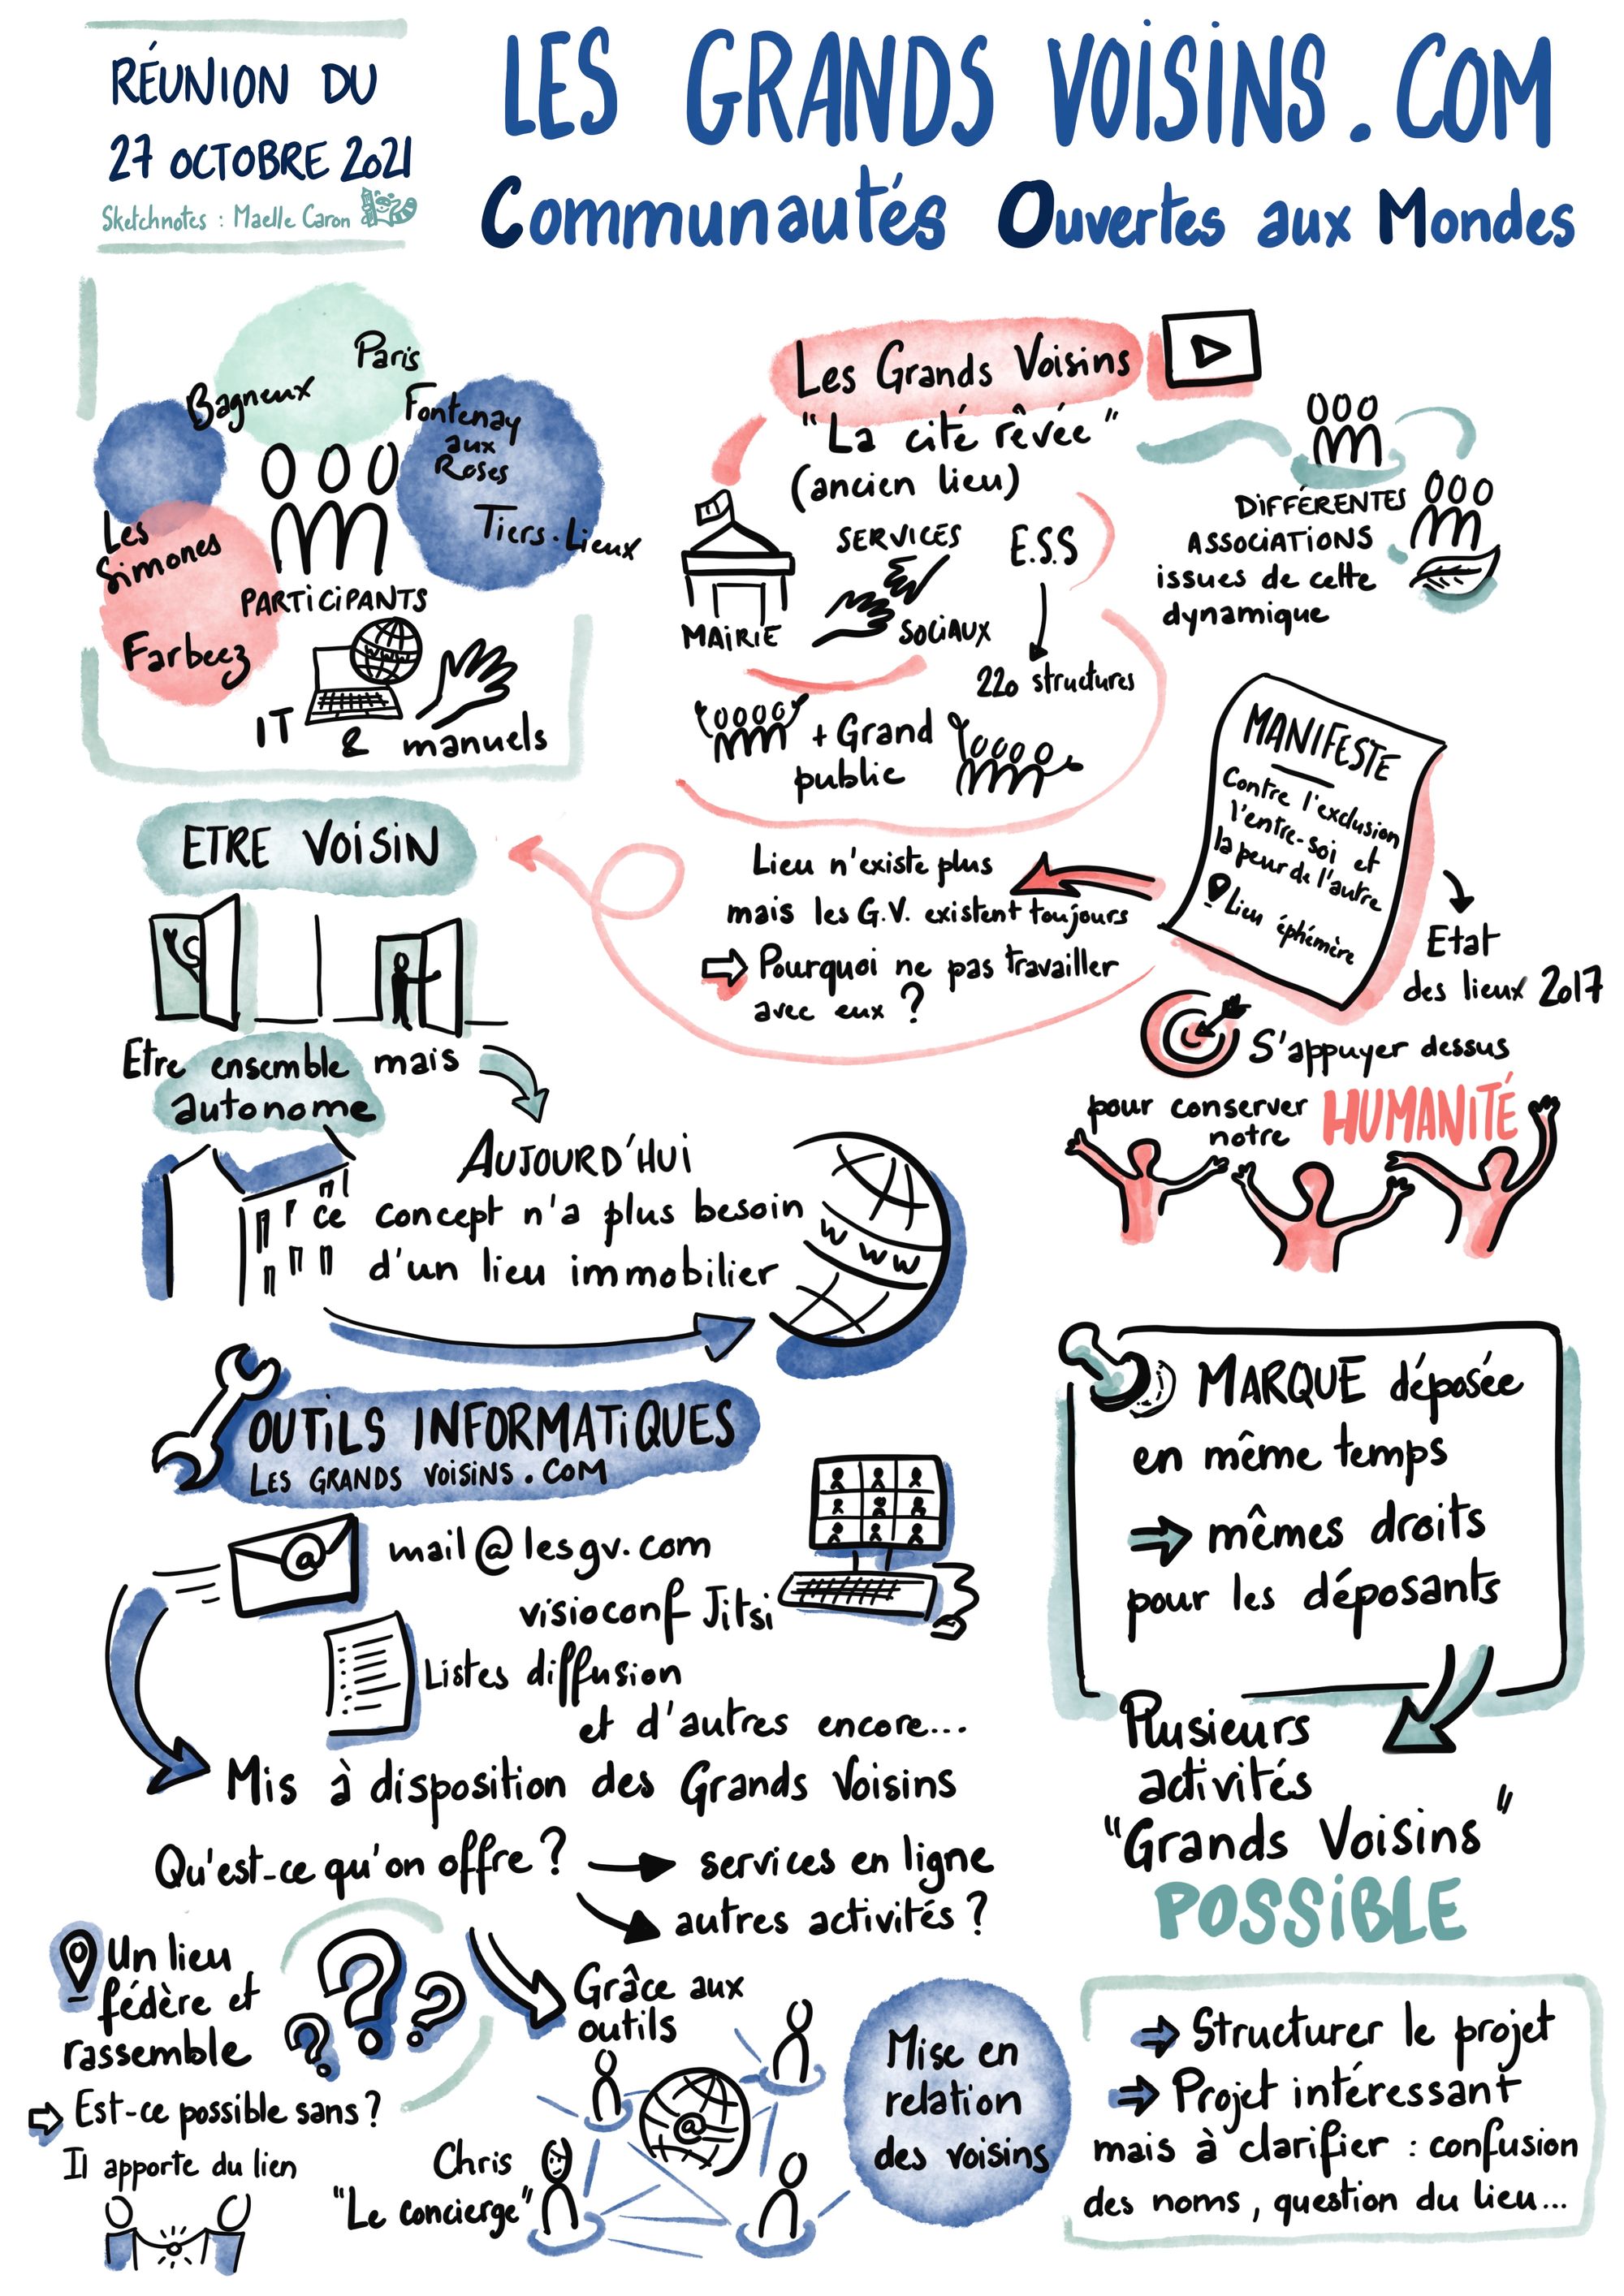 RÉUNION DU
27 OCTOBRE 2021
Sketchnotes : Maelle Caron
LES GRANDS VOISINS.COM
Communautés Ouvertes aux Mondes
Paris
Bagneux
Fontenay
aux
Roses
Tiers-Lieux
Les
Simones
PARTICIPANTS
Farbeez
www
IT & manuels
Les Grands Voisins
"La cité rêvée"
(ancien lieu)
SERVICES
SOCIAUX
E.S.S
MAIRIE
220 structures
+ Grand
public
DIFFÉRENTES
ASSOCIATIONS
issues de cette
dynamique
MANIFESTE
Contre l'exclusion
l'entre-soi et
la peur de l'autre
Lieu éphémère
Etat
des lieux 2017
Lieu n'existe plus
mais les G.V. existent toujours
Pourquoi ne pas travailler
avec eux ?
S'appuyer dessus
pour conserver
notre
HUMANITÉ
ETRE VOISIN
Etre ensemble mais
autonome
AUJOURD'HUI
ce concept n'a plus besoin
d'un lieu immobilier
www
OUTILS INFORMATIQUES
LES GRANDS VOISINS.COM
@
mail@lesgv.com
visioconf Jitsi
Listes diffusion
et d'autres encore...
Mis à disposition des Grands Voisins
Qu'est-ce qu'on offre ?
services en ligne
autres activités ?
Un lieu
fédère et
rassemble
Est-ce possible sans ?
Il apporte du lien
???
Grâce aux
outils
@
Chris
"Le concierge"
Mise en
relation
des voisins
MARQUE déposée
en même temps
mêmes droits
pour les déposants
Plusieurs
activités
"Grands Voisins"
POSSIBLE
Structurer le projet
Projet intéressant
mais à clarifier : confusion
des noms, question du lieu...